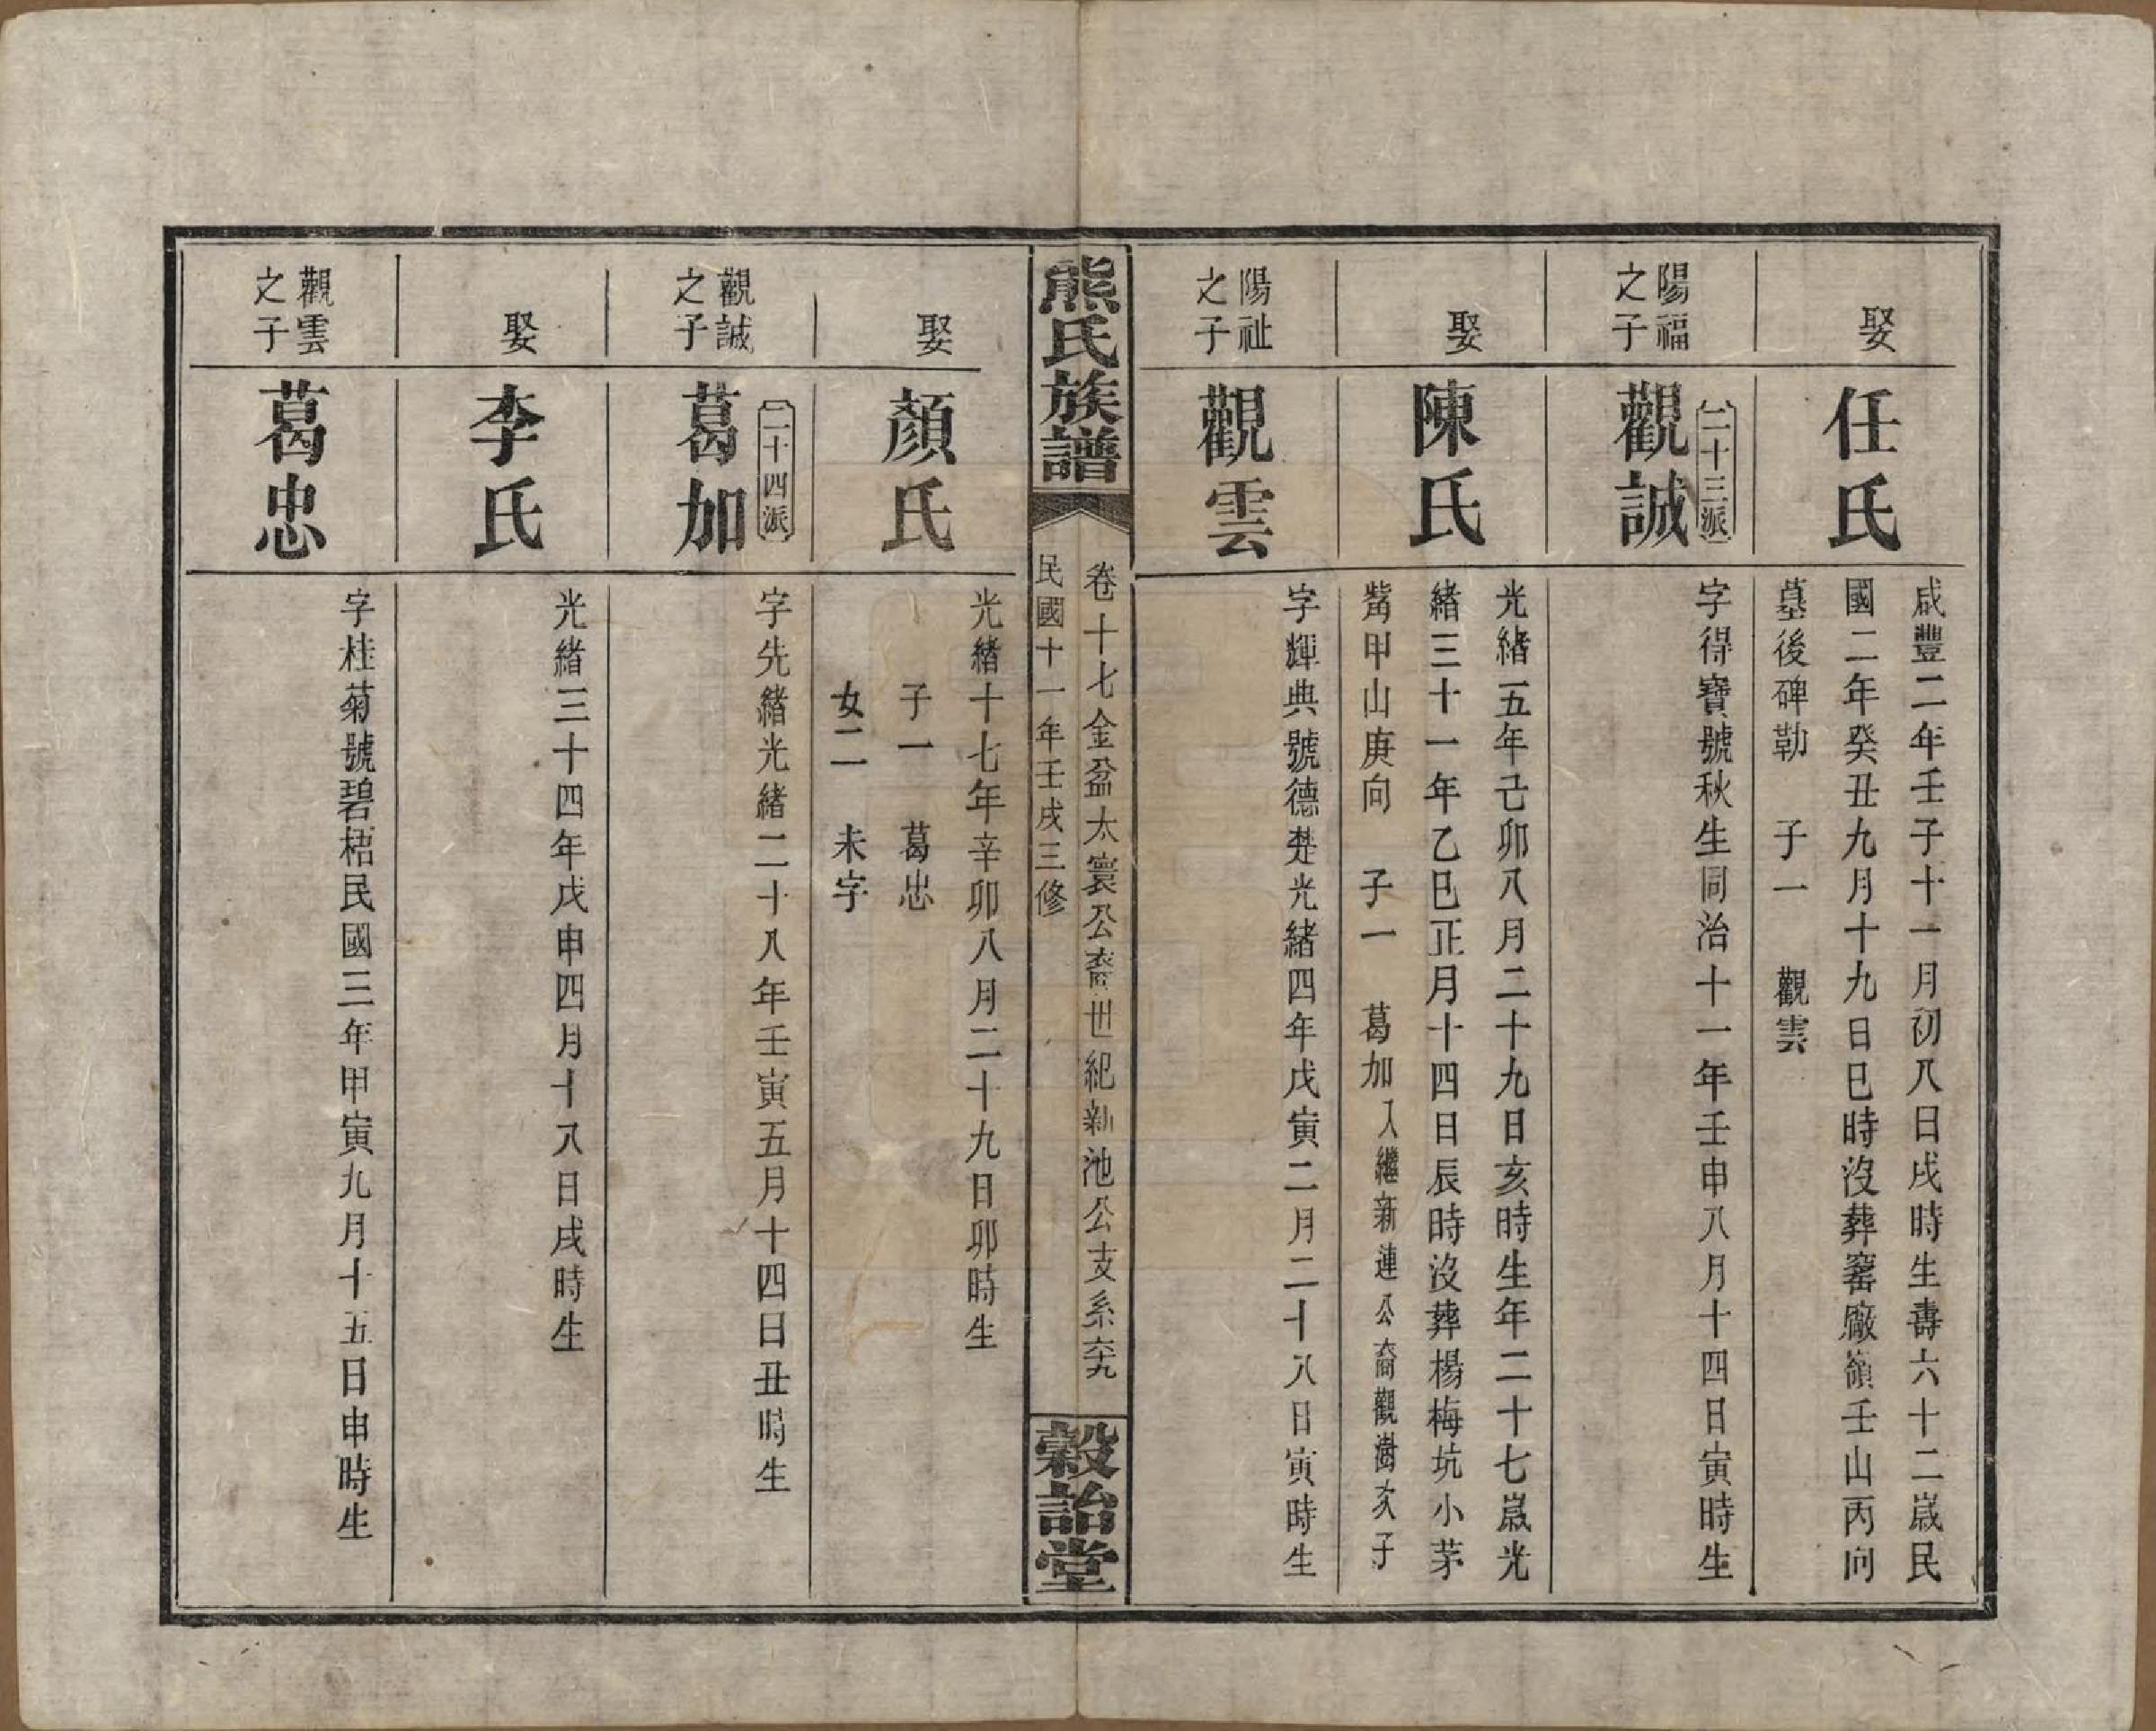 娶
任氏
咸豐二年壬子十一月初八日戌時生壽六十二歲民
國二年癸丑九月十九日巳時沒葬窰廠嶺壬山丙向
墓後碑勒 子一 觀雲
陽福
之子
二十三派
觀誠
字得寶號秋生同治十一年壬申八月十四日寅時生
娶
陳氏
光緒五年己卯八月二十九日亥時生年二十七歲光
緒三十一年乙巳正月十四日辰時沒葬楊梅坑小茅
觜甲山庚向 子一 葛加入繼新連公裔觀澍次子
陽祉
之子
觀雲
字輝典號德楚光緒四年戊寅二月二十八日寅時生
熊氏族譜
卷十七金盆太寰公裔世紀新池公支系六十九
民國十一年壬戌三修
穀詒堂
娶
顏氏
光緒十七年辛卯八月二十九日卯時生
子一 葛忠
女二 未字
觀誠
之子
二十四派
葛加
字先緒光緒二十八年壬寅五月十四日丑時生
娶
李氏
光緒三十四年戊申四月十八日戌時生
觀雲
之子
葛忠
字桂菊號碧梧民國三年甲寅九月十五日申時生